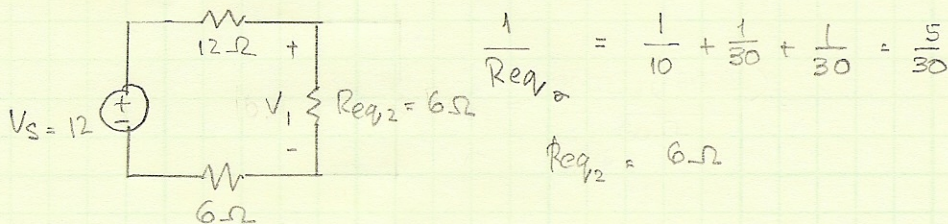 12 Ω
+
Vs = 12
+
-
V1
Req2 = 6Ω
-
6Ω
1/Req2 = 1/10 + 1/30 + 1/30 = 5/30
Req2 = 6Ω